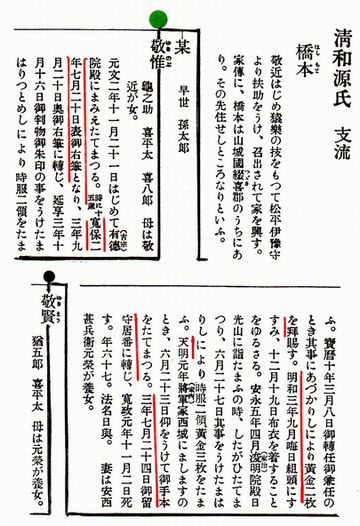 清和源氏 支流
橋本
はしもと
敬近はじめ猿樂の技をもつて松平伊豫守
より扶助をうけ、召出されて家を興す。
家傳に、橋本は山城國綴喜郡のうちにあ
り。その先住せしところなりといふ。
某
早世 孫太郎
敬惟
龜之助 喜平太 喜八郎 母は敬
近が女。
元文二年十一月二十一日はじめて有德
院殿にまみえたてまつる。時に十五歳 寬保二
年七月二十日表御右筆となり、三年九
月二十日奥御右筆に轉じ、延享三年十
月十六日御判物御朱印の事をうけたま
はりつとめしにより時服二領をたま
ふ。寶曆十年三月八日御轉任御兼任の
とき其事にあづかりしにより黃金二枚
を拜賜す。明和三年九月晦日組頭にす
すみ、十二月十九日布衣を着すること
をゆるさる。安永五年四月浚明院殿日
光山に詣たまふの時、したがひたてま
つり、六月二十七日其事をうけたまは
りしにより時服二領黃金三枚をたま
ふ。天明元年將軍家西城にましますの
とき、六月二十三日仰をうけて御手本
をたてまつる。三年七月二十四日御留
守居番に轉じ、寬政元年十一月二日死
す。年六十七。法名日與。妻は安西
甚兵衞元榮が養女。
敬賢
猶五郎 喜平太 母は元榮が養女。